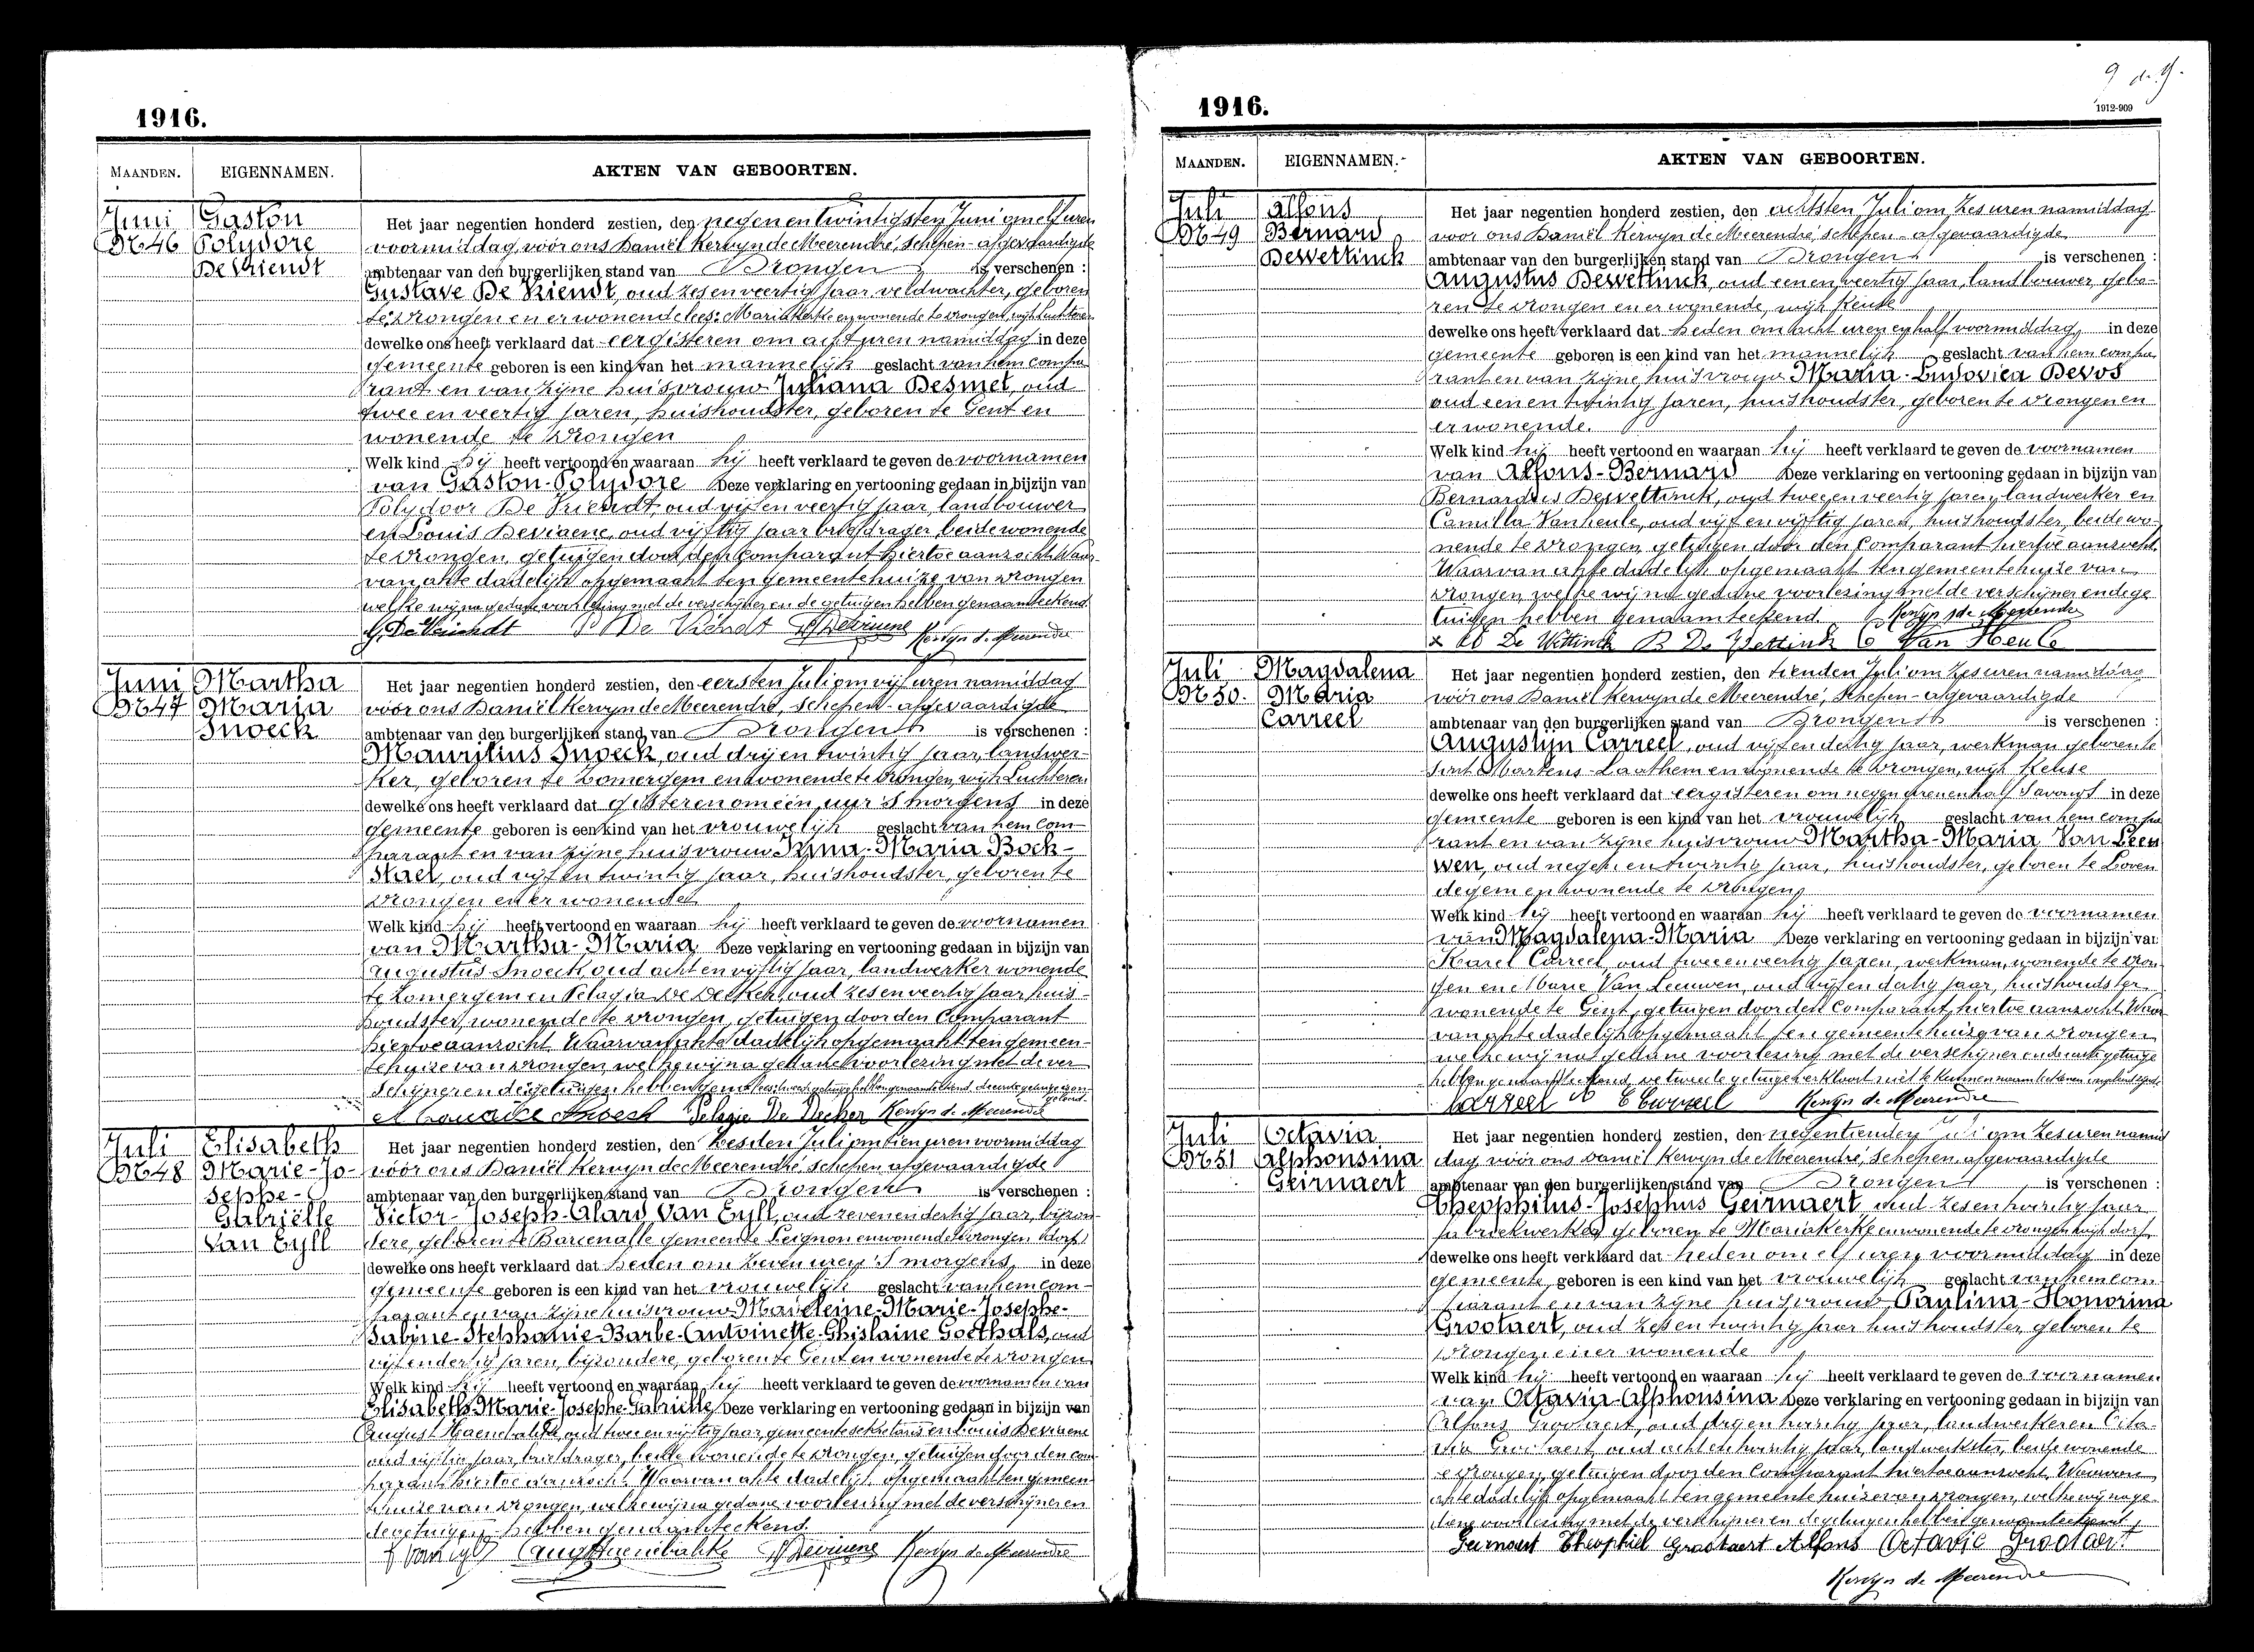 1916.
MAANDEN. EIGENNAMEN. AKTEN VAN GEBOORTEN.
Juni Gaston Het jaar negentien honderd zestien, den negen en twintigsten Juni om elf uren
No 46 Polydore voormiddag, vóór ons Daniël Kervyn de Meerendré, schepen-afgevaardigde
De Vriendt ambtenaar van den burgerlijken stand van Drongen is verschenen :
Gustave De Vriendt, oud zes en veertig jaar veldwachter, geboren
te Drongen en er wonende lees: Mariakerke en wonende te Drongen, wijk Luchteren
dewelke ons heeft verklaard dat eergisteren om acht uren namiddag in deze
gemeente geboren is een kind van het mannelijk geslacht van hem compa
rant en van zijne huisvrouw Juliana Desmet, oud
twee en veertig jaren, huishoudster, geboren te Gent en
wonende te Drongen
Welk kind hij heeft vertoond en waaraan hij heeft verklaard te geven de voornamen
van Gaston-Polydore Deze verklaring en vertooning gedaan in bijzijn van
Polydoor De Vriendt oud vijf en veertig jaar landbouwer
en Louis Deviaene, oud vijftig jaar briefdrager, beide wonende
te Drongen, getuigen door den Comparant hiertoe aanzocht. Waar
van akte dadelijk opgemaakt ten gemeentehuize van Drongen
welke wij na gedane voorlezing met de verschijner en de getuigen hebben genaamteekend.
G. De Vriendt P De Vriendt L Deviaene Kervyn de Meerendré
Juni Martha Het jaar negentien honderd zestien, den eersten Juli om vijf uren namiddag
No 47 Maria vóór ons Daniël Kervyn de Meerendré, schepen-afgevaardigde
Snoeck ambtenaar van den burgerlijken stand van Drongen is verschenen :
Mauritius Snoeck, oud drij en twintig jaar, landwer-
ker, geboren te Zomergem en wonende te Drongen, wijk Luchteren
dewelke ons heeft verklaard dat gisteren om één uur 's morgens in deze
gemeente geboren is een kind van het vrouwelijk geslacht van hem com-
parant en van zijne huisvrouw Irma-Maria Bock-
stael, oud vijf en twintig jaar, huishoudster, geboren te
Drongen en er wonende
Welk kind hij heeft vertoond en waaraan hij heeft verklaard te geven de voornamen
van Martha-Maria Deze verklaring en vertooning gedaan in bijzijn van
Augustus Snoeck, oud acht en vijftig jaar, landwerker wonende
te Zomergem en Pelagia De Decker, oud zes en veertig jaar huis-
houdster, wonende te Drongen, getuigen door den Comparant
hiertoe aanzocht. Waarvan akte dadelijk opgemaakt ten gemeen-
tehuize van Drongen, welke wij na gedane voorlezing met de ver
schijner en de getuigen hebben
Maurice Snoeck Pelagie De Decker Kervyn de Meerendré
Juli Elisabeth Het jaar negentien honderd zestien, den zesden Juli om tien uren voormiddag
No 48 Marie-Jo- vóór ons Daniël Kervyn de Meerendré, schepen afgevaardigde
sephe- ambtenaar van den burgerlijken stand van Drongen is verschenen :
Gabriëlle Victor-Joseph-Alard Van Eyll, oud zeven en dertig jaar, bijzon-
Van Eyll dere, geboren te Barcenalle gemeente Leignon en wonende te Drongen (dorp)
dewelke ons heeft verklaard dat heden om zeven uren 's morgens in deze
gemeente geboren is een kind van het vrouwelijk geslacht van hem com-
parant en van zijne huisvrouw Madeleine-Marie-Josephe-
Sabine-Stephanie-Barbe-Antoinette-Ghislaine Goethals, oud
vijf en dertig jaren, bijzondere, geboren te Gent en wonende te Drongen
Welk kind hij heeft vertoond en waaraan hij heeft verklaard te geven de voornamen van
Elisabeth-Marie-Josephe-Gabrielle Deze verklaring en vertooning gedaan in bijzijn van
August oud twee en vijftig jaar, gemeentesekretaris en Louis Deviaene
oud vijftig jaar, briefdrager, beide wonende te Drongen, getuigen door den com
parant hiertoe aanzocht. Waarvan akte dadelijk opgemaakt ten gemeen
tehuize van Drongen, welke wij na gedane voorlezing met de verschijner en
de getuigen hebben genaamteekend.
L Deviaene Kervyn de Meerendré
1916.
1912-909
MAANDEN. EIGENNAMEN. AKTEN VAN GEBOORTEN.
Juli Alfons Het jaar negentien honderd zestien, den achtsten Juli om zes uren namiddag
No 49 Bernard voor ons Daniël Kervyn de Meerendré, schepen-afgevaardigde
Dewettinck ambtenaar van den burgerlijken stand van Drongen is verschenen :
Augustus Dewettinck, oud een en veertig jaar, landbouwer, gebo-
ren te Drongen en er wonende, wijk Keuze
dewelke ons heeft verklaard dat heden om acht uren en half voormiddag in deze
gemeente geboren is een kind van het mannelijk geslacht van hem compa
rant en van zijne huisvrouw Maria-Ludovica Devos
oud een en twintig jaren, huishoudster, geboren te Drongen en
er wonende.
Welk kind hij heeft vertoond en waaraan hij heeft verklaard te geven de voornamen
van Alfons-Bernard Deze verklaring en vertooning gedaan in bijzijn van
Bernardus Dewettinck, oud twee en veertig jaren, landwerker en
Camilla Vanheule, oud vijf en vijftig jaren, huishoudster, beide wo-
nende te Drongen, getuigen door den Comparant hiertoe aanzocht.
Waarvan akte dadelijk opgemaakt ten gemeentehuize van
Drongen welke wij na gedane voorlezing met de verschijner en de ge
tuigen hebben genaamteekend. Kervyn de Meerendré
De Wettinck B De Wettinck C Van Heule
Juli Magdalena Het jaar negentien honderd zestien, den tienden Juli om zes uren namiddag
No 50. Maria vóór ons Daniël Kervyn de Meerendré, schepen-afgevaardigde
Carreel ambtenaar van den burgerlijken stand van Drongen is verschenen :
Augustijn Carreel, oud vijf en dertig jaar, werkman geboren te
Sint Martens-Laathem en wonende te Drongen, wijk Keuze
dewelke ons heeft verklaard dat eergisteren om negen uren en half 's avonds in deze
gemeente geboren is een kind van het vrouwelijk geslacht van hem compa
rant en van zijne huisvrouw Martha-Maria Van Leeu
wen, oud negen en twintig jaar, huishoudster, geboren te Loven
degem en wonende te Drongen
Welk kind hij heeft vertoond en waaraan hij heeft verklaard te geven de voornamen
van Magdalena-Maria Deze verklaring en vertooning gedaan in bijzijn van
Karel Carreel, oud twee en veertig jaren, werkman, wonende te Dron
gen en Marie Van Leeuwen, oud vijf en dertig jaar, huishoudster
wonende te Gent, getuigen door den Comparant hiertoe aanzocht. Waar
van akte dadelijk opgemaakt ten gemeentehuize van Drongen
welke wij na gedane voorlezing met de verschijner en de getuige
hebben genaamteekend, de tweede getuige verklaart niet te kunnen
Carreel A Carreel Kervyn de Meerendré
Juli Octavia Het jaar negentien honderd zestien, den negentienden Juli om zes uren namid
No 51 Alphonsina dag vóór ons Daniël Kervyn de Meerendré, schepen-afgevaardigde
Geirnaert ambtenaar van den burgerlijken stand van Drongen is verschenen :
Theophilus-Josephus Geirnaert oud zes en twintig jaar
fabriekwerker geboren te Mariakerke en wonende te Drongen wijk dorp
dewelke ons heeft verklaard dat heden om elf uren voormiddag in deze
gemeente geboren is een kind van het vrouwelijk geslacht van hem com
parant en van zijne huisvrouw Paulina-Honorina
Grootaert, oud zes en twintig jaar huishoudster, geboren te
Drongen en er wonende
Welk kind hij heeft vertoond en waaraan hij heeft verklaard te geven de voornamen
van Octavia-Alphonsina Deze verklaring en vertooning gedaan in bijzijn van
Alfons Grootaert, oud drij en twintig jaar, landwerker en Octa-
via Grootaert oud acht en twintig jaar, landwerkster, beide wonende
te Drongen, getuigen door den Comparant hiertoe aanzocht. Waarvan
akte dadelijk opgemaakt ten gemeentehuize van Drongen, welke wij na ge
dane voorlezing met de verschijner en de getuigen hebben genaamteekend,
Geirnaert Theophiel Grootaert Alfons Octavie Grootaert
Kervyn de Meerendré